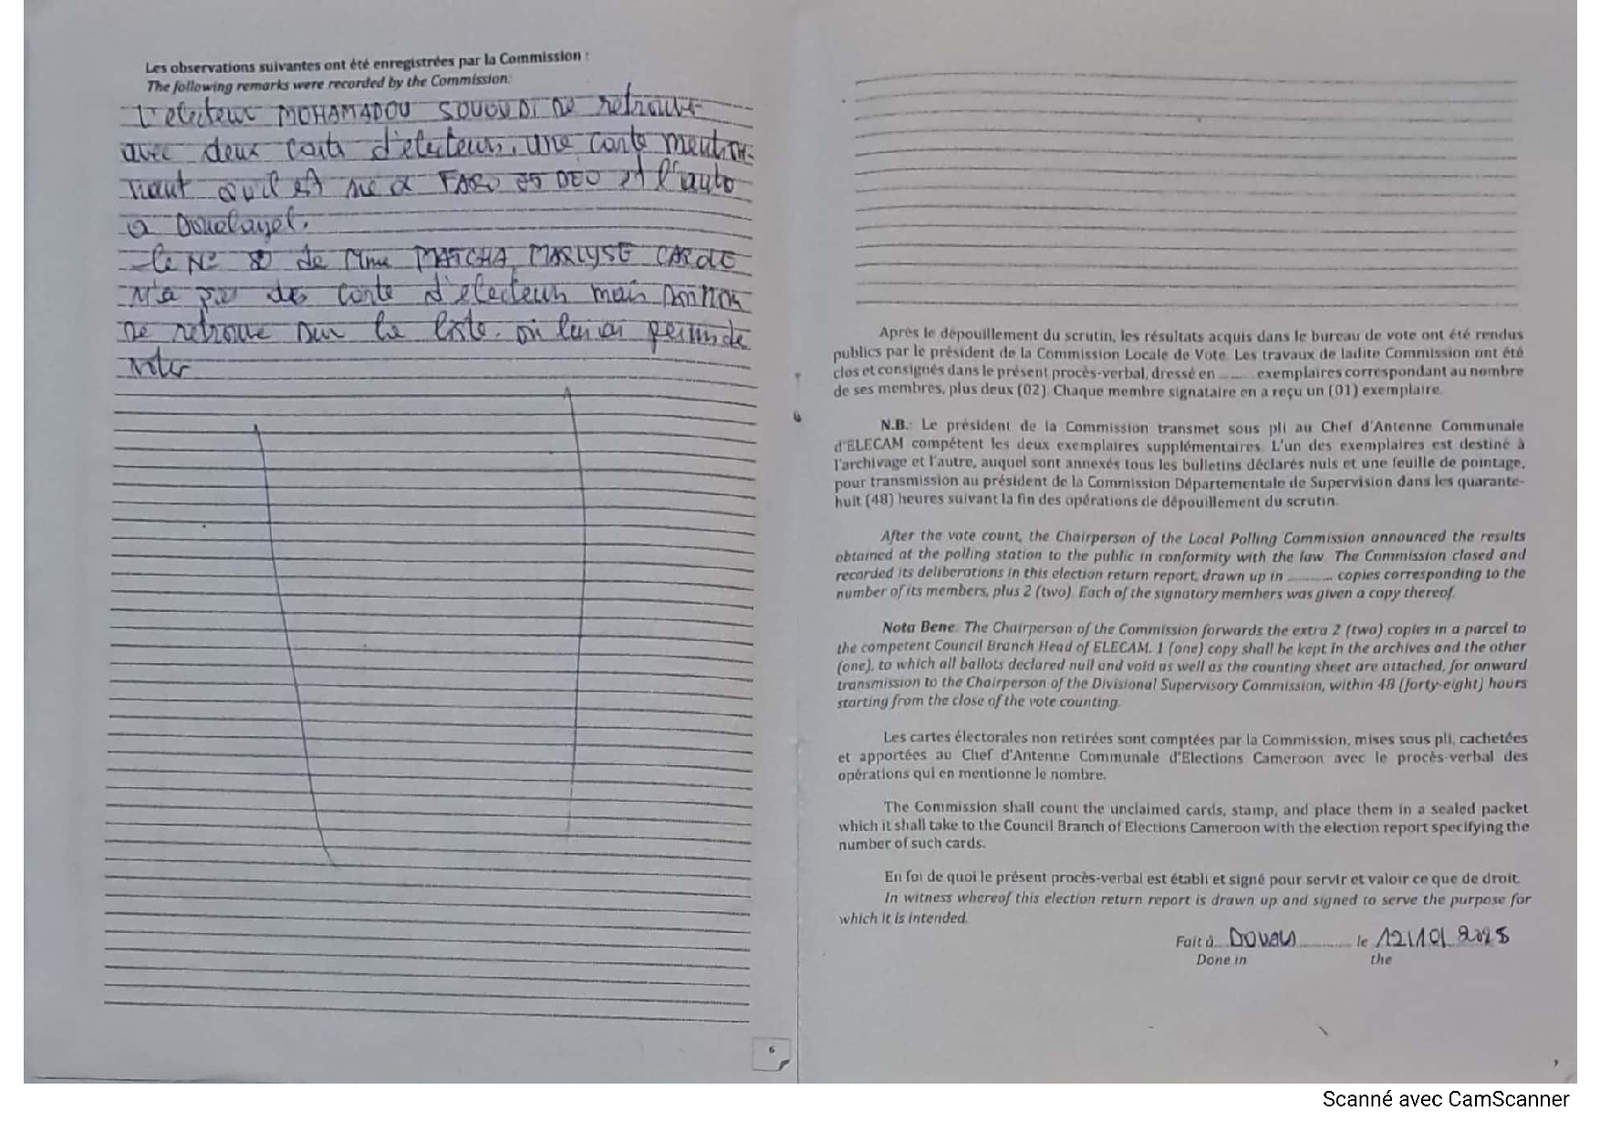 Les observations suivantes ont été enregistrées par la Commission :
The following remarks were recorded by the Commission:
L'electeur MOHAMADOU SOUOUDI se retrouve
avec deux carts d'électeurs, une carte mention-
nant qu'il est né a FARO ET DEO et l'autre
a Doualayel.
Le N° 8 de Mme MATCHA MARLYSE CAROLE
N'a pas de carte d'electeur mais son nom
se retrouve sur la liste. on lui a permis de
voter
6
Après le dépouillement du scrutin, les résultats acquis dans le bureau de vote ont été rendus
publics par le président de la Commission Locale de Vote. Les travaux de ladite Commission ont été
clos et consignés dans le présent procès-verbal, dressé en ........ exemplaires correspondant au nombre
de ses membres, plus deux (02). Chaque membre signataire en a reçu un (01) exemplaire.
N.B.: Le président de la Commission transmet sous pli au Chef d'Antenne Communale
d'ELECAM compétent les deux exemplaires supplémentaires. L'un des exemplaires est destiné à
l'archivage et l'autre, auquel sont annexés tous les bulletins déclarés nuls et une feuille de pointage,
pour transmission au président de la Commission Départementale de Supervision dans les quarante-
huit (48) heures suivant la fin des opérations de dépouillement du scrutin.
After the vote count, the Chairperson of the Local Polling Commission announced the results
obtained at the polling station to the public in conformity with the law. The Commission closed and
recorded its deliberations in this election return report, drawn up in .......... copies corresponding to the
number of its members, plus 2 (two). Each of the signatory members was given a copy thereof.
Nota Bene: The Chairperson of the Commission forwards the extra 2 (two) copies in a parcel to
the competent Council Branch Head of ELECAM. 1 (one) copy shall be kept in the archives and the other
(one), to which all ballots declared null and void as well as the counting sheet are attached, for onward
transmission to the Chairperson of the Divisional Supervisory Commission, within 48 (forty-eight) hours
starting from the close of the vote counting.
Les cartes électorales non retirées sont comptées par la Commission, mises sous pli, cachetées
et apportées au Chef d'Antenne Communale d'Elections Cameroon avec le procès-verbal des
opérations qui en mentionne le nombre.
The Commission shall count the unclaimed cards, stamp, and place them in a sealed packet
which it shall take to the Council Branch of Elections Cameroon with the election report specifying the
number of such cards.
En foi de quoi le présent procès-verbal est établi et signé pour servir et valoir ce que de droit.
In witness whereof this election return report is drawn up and signed to serve the purpose for
which it is intended.
Fait à DOUALA le 12/10/2025
Done in the
7
Scanné avec CamScanner